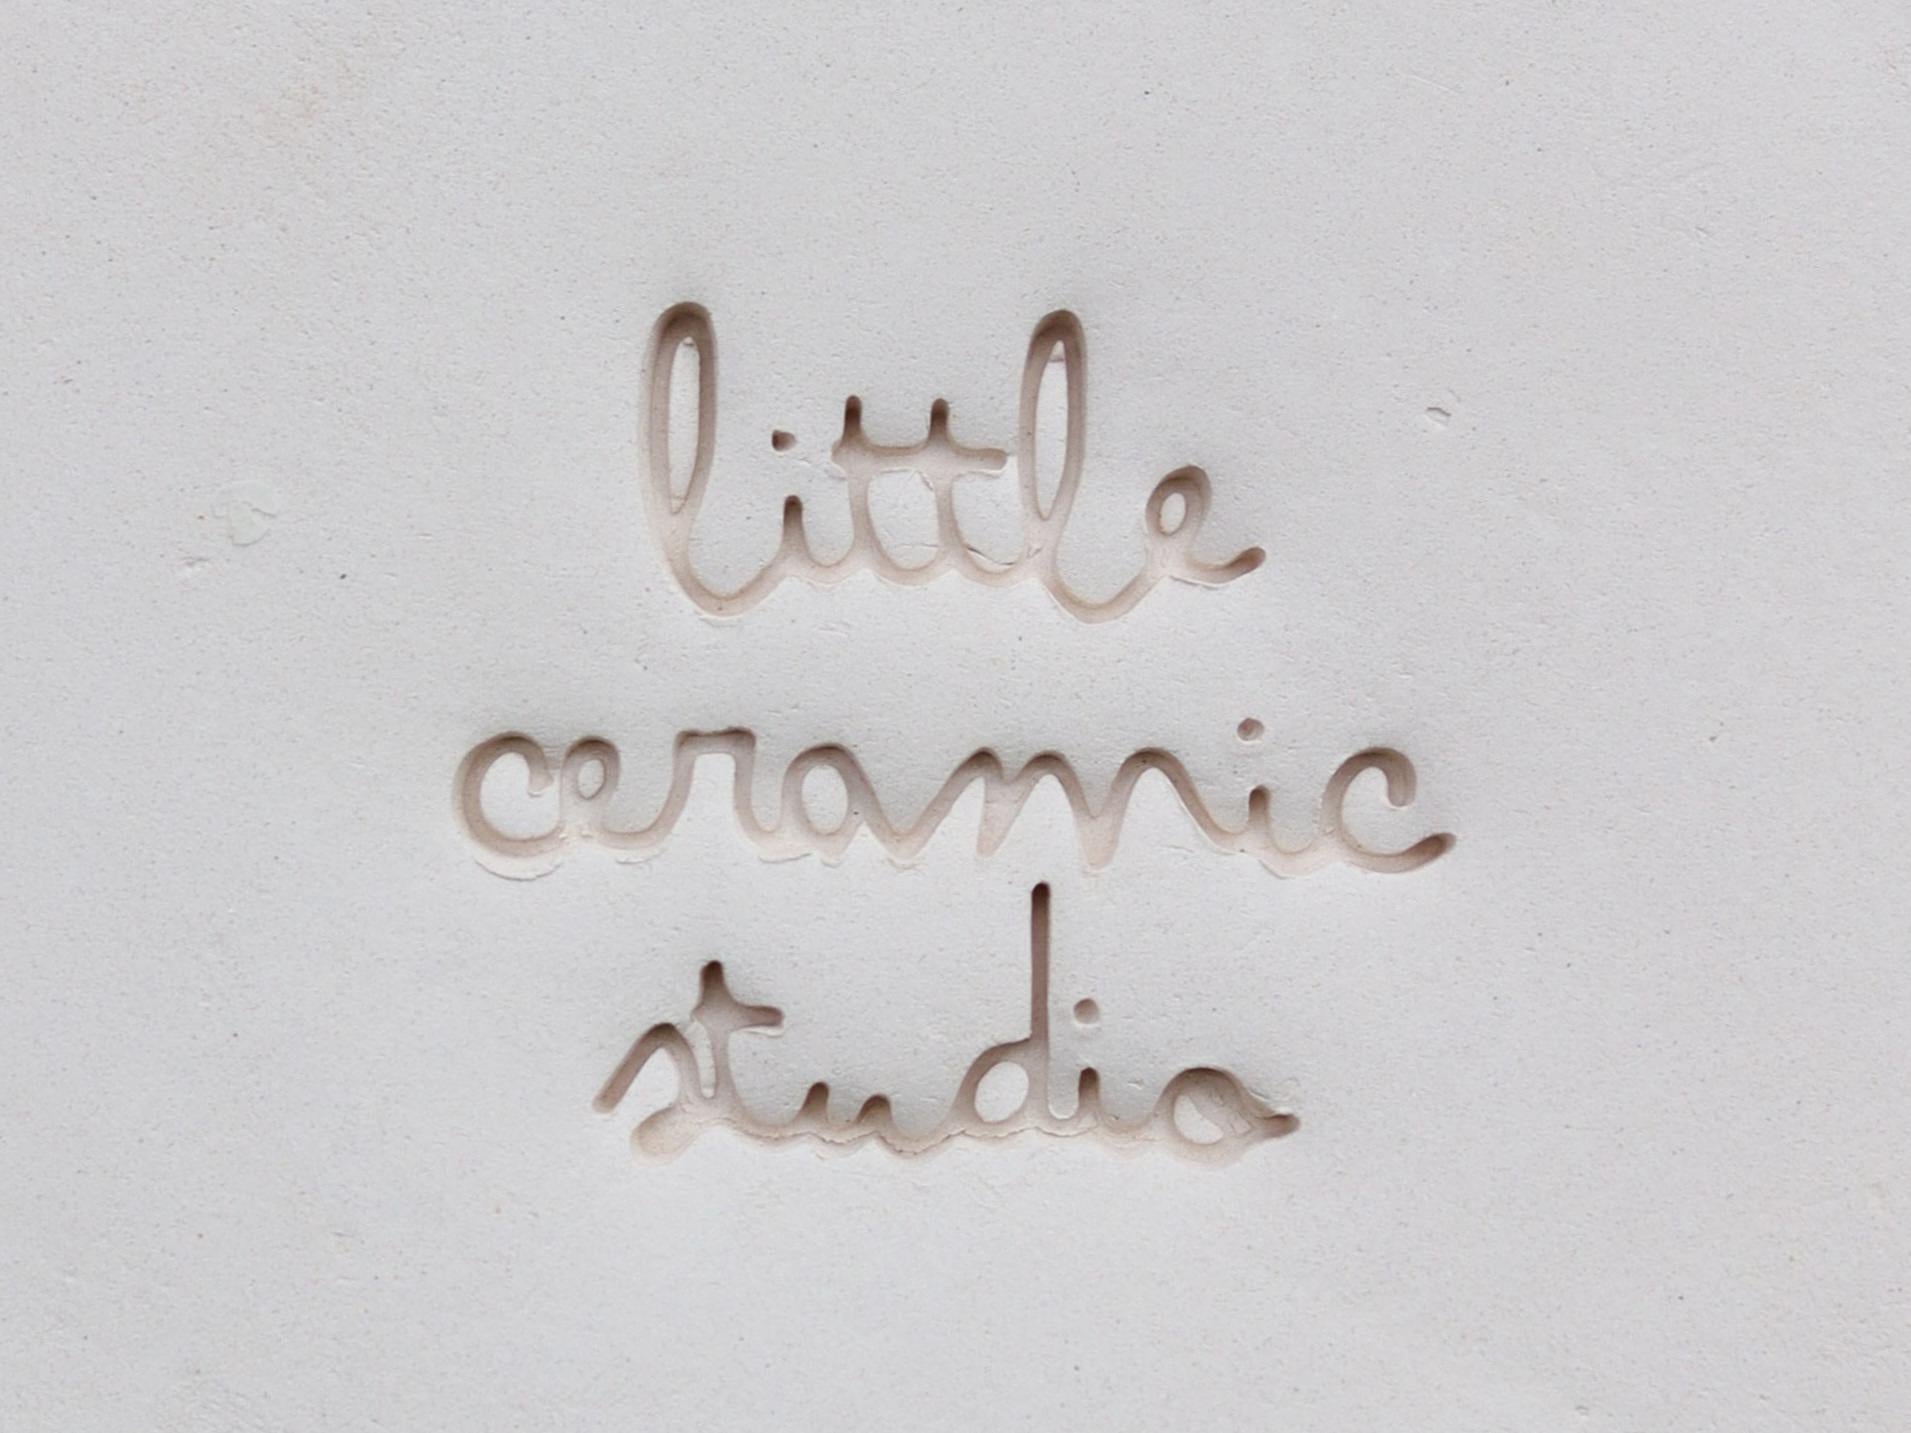 little
ceramic
studio